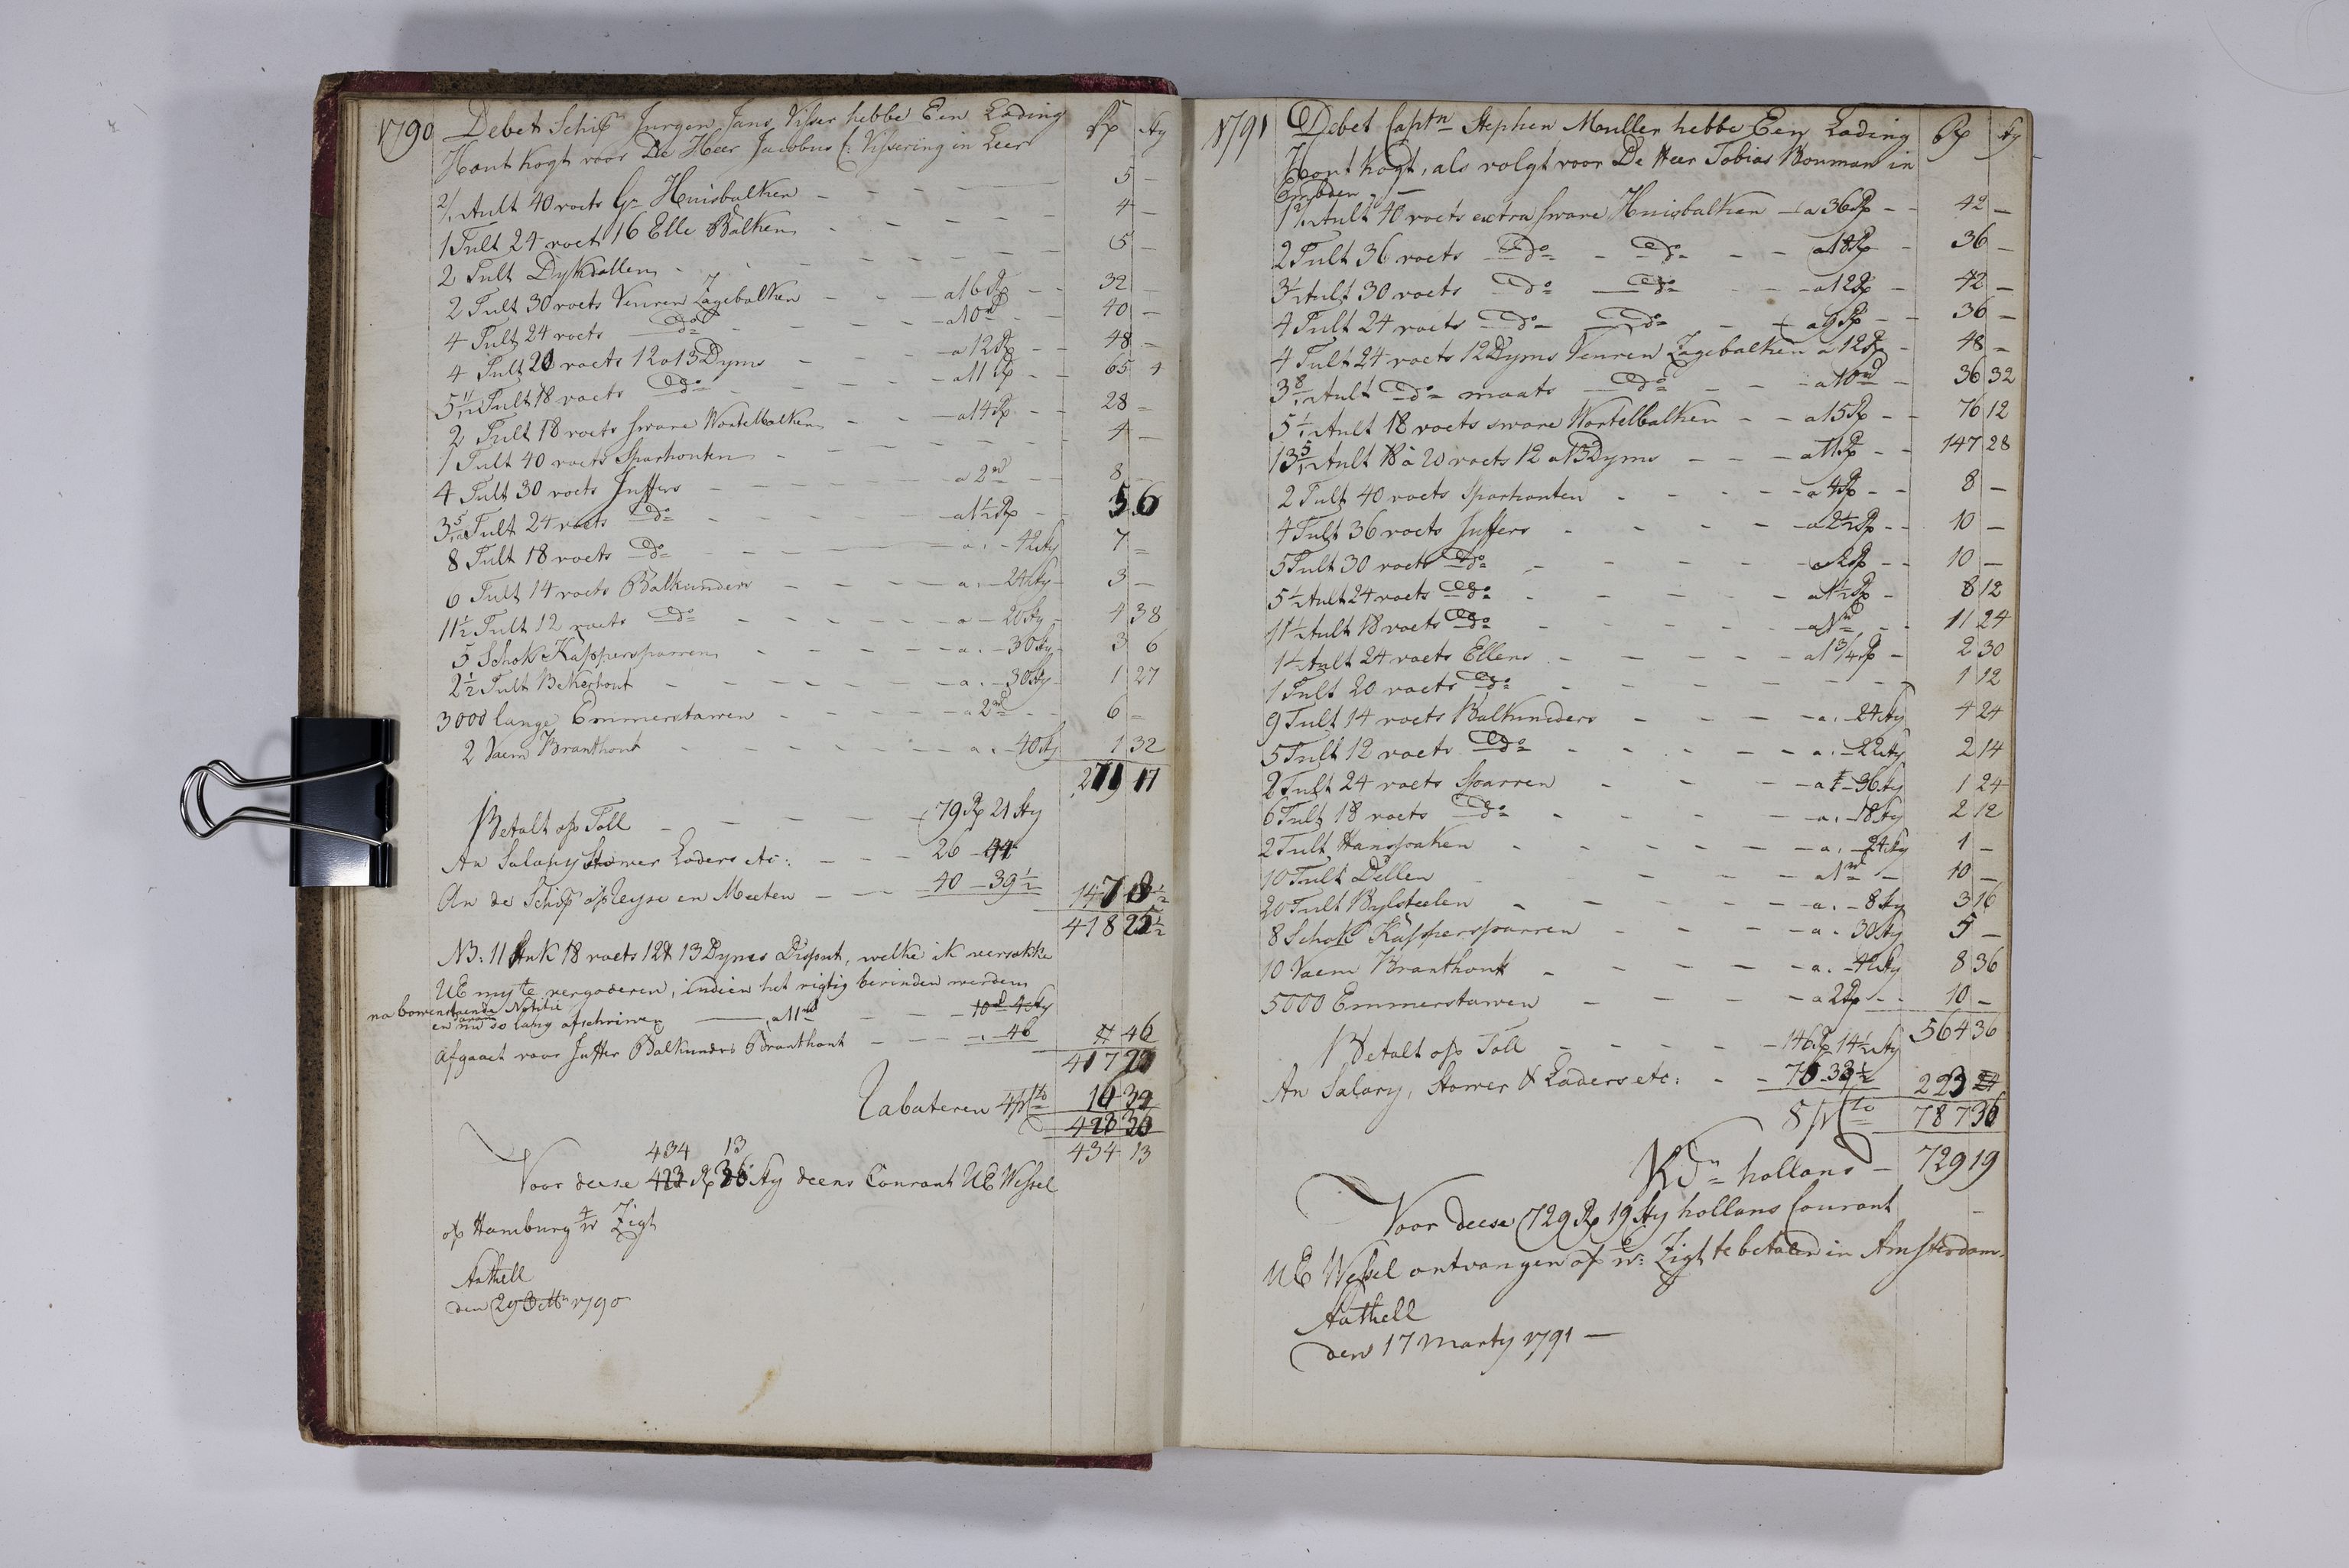 1790 Debet Schip Jurgen Jans Visser hebbe Een Lading Rp Sty
Hout kogt voor De Heer Jacobus C: Vissering in Leer
2/1 Tult 40 voets Gr Huisbalken - - - 5 -
1 Tult 24 voet 16 Elle Balken - - - 4 -
2 Tult Dykdallen - - - 5 -
2 Tult 30 voets Veuren Zagebalken - - a 16 Rp - 32 -
4 Tult 24 voets do - - a 10 rd - 40 -
4 Tult 20 voets 12 a 13 Dyms - - a 12 Rp - 48 -
5 11/12 Tult 18 voets do - - a 11 Rp - 65 4
2 Tult 18 voets sware Wortelbalken - - a 14 Rp - 28 -
1 Tult 40 voets Sparhouten - - - 4 -
4 Tult 30 voets Juffers - - a 2 rd - 8 -
3 5/12 Tult 24 voets do - - a 1 1/2 Rp - 5 6
8 Tult 18 voets do - - a . - 42 Sty 7 -
6 Tult 14 voets Balkunders - - a . - 24 Sty 3 -
11 1/2 Tult 12 voets do - - a - 20 Sty 4 38
5 Schok Kappersparren - - a . - 30 Sty 3 6
2 1/2 Tult Bekerhout - - a . - 30 Sty 1 27
3000 lange Emmerstawen - - a 2 rd - 6 -
2 Vaem Branthout - - a . - 40 Sty 1 32
271 17
Betalt op Toll - - - 79 Rp 21 Sty
An Salary Stower Laders etc: - - - 26 - 44
An de Schip opleyse en Meeten - - 40 - 39 1/2 147 8 1/2
418 25 1/2
NB: 11 Stuk 18 voets 12 a 13 Dyms Disput, welke ik versokke
UE my te vergoderen, indien het rigtig bevinden werden
na bowenstaende Notitie
en nu so lang afschriwen - a 11 rd - 10 rd 4 Sty
Afgaaet voor Juffer Balkunders Branthout - - . - 46 46
417
Rabateren 4 pCto 16 32
423 36
434 13
434 13
Voor deese 423 Rp 36 Sty deens Courant UE Wessel
op Hamburg 4/w Zigt
Aathell
den 29 Octbr 1790
1791 Debet Captn Stephen Muller hebbe Een Lading Rp Sty
Hout kogt, als volgt voor De Heer Tobias Bouman in
Embden -
1 2/12 Tult 40 voets extra sware Huisbalken - a 36 Rp - 42 -
2 Tult 36 voets do - do - - a 18 Rp - 36 -
3 1/2 Tult 30 voets do do - - a 12 Rp - 42 -
4 Tult 24 voets do do - - a 9 Rp - 36 -
4 Tult 24 voets 12 Dyms Veuren Zagebalken a 12 Rp - 48 -
3 8/12 Tult do maats do - - a 10 rd - 36 32
5 1/12 Tult 18 voets sware Wortelbalken - - a 15 Rp - 76 12
13 5/12 Tult 18 à 20 voets 12 a 13 Dyms - - a 11 Rp - 147 28
2 Tult 40 voets Sparhouten - - a 4 Rp - 8 -
4 Tult 36 voets Juffers - - a 2 1/2 Rp - 10 -
5 Tult 30 voets do - - a 2 Rp - 10 -
5 1/2 Tult 24 voets do - - a 1 1/2 Rp - 8 12
11 1/2 Tult 18 voets do - - a 1 rd - 11 24
1 1/2 Tult 24 voets Ellens - - a 1 3/4 Rp - 2 30
1 Tult 20 voets do - - - 1 12
9 Tult 14 voets Balkunders - - a . - 24 Sty 4 24
5 Tult 12 voets do - - a . - 22 Sty 2 14
2 Tult 24 voets Sparren - - a - 36 Sty 1 24
6 Tult 18 voets do - - a . - 18 Sty 2 12
2 Tult Hanspaken - - a . - 24 Sty 1 -
10 Tult Dellen a 1 rd - 10 -
20 Tult Bylsteelen - - a . - 8 Sty 3 16
8 Schok Kappersparren - - a . 30 Sty 5 -
10 Vaem Branthout - - a . - 42 Sty 8 36
5000 Emmerstawen - - a 2 Rp - 10 -
564 36
Betalt op Toll - - - 146 Rp 14 1/2 Sty
An Salary, Stower & Laders etc: - - 76 33 1/2 223
8 pCto 787 36
Rdr hollans - 729 19
Voor deese 729 Rp 19 Sty hollans Courant
UE Wessel ontvangen op 6/w: Zigt te betalen in Amsterdam.
Aathell
den 17 Marty 1791 -